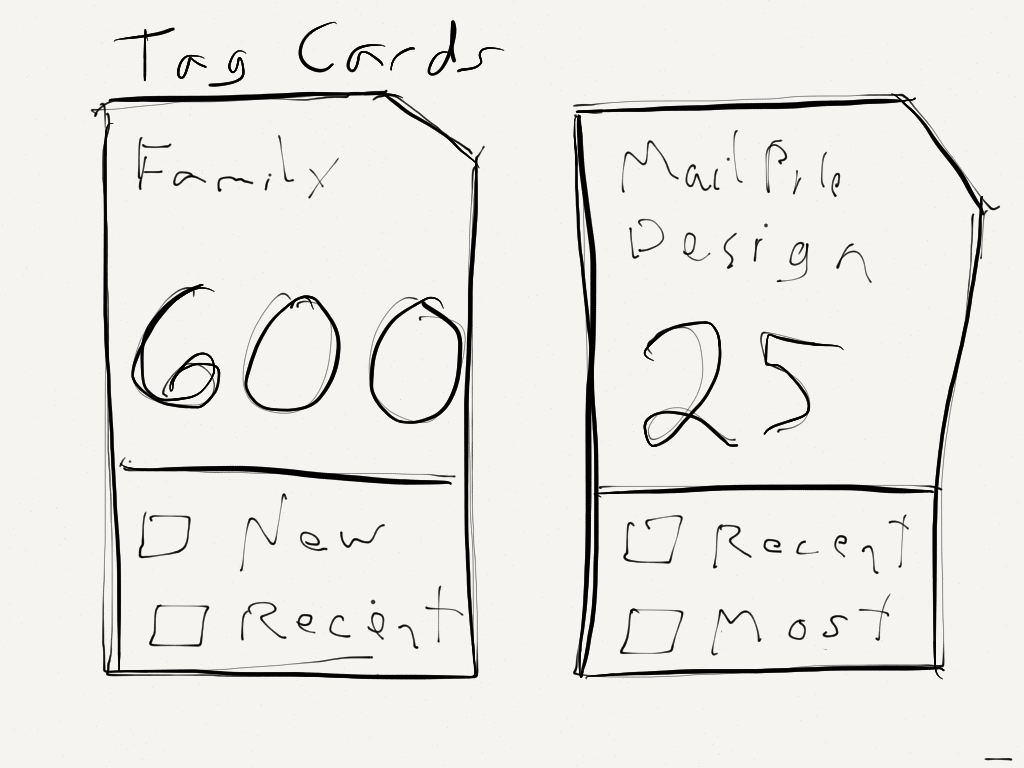 Tag Cards
Family
600
New
Recent
MailPile
Design
25
Recent
Most